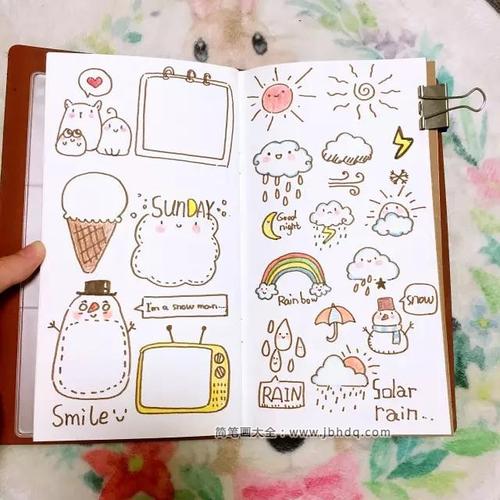 SUNDAY
I'm a snow man...
Smile
Good
night
Rainbow
snow
RAIN
Solar
rain...
简笔画大全：www.jbhdq.com